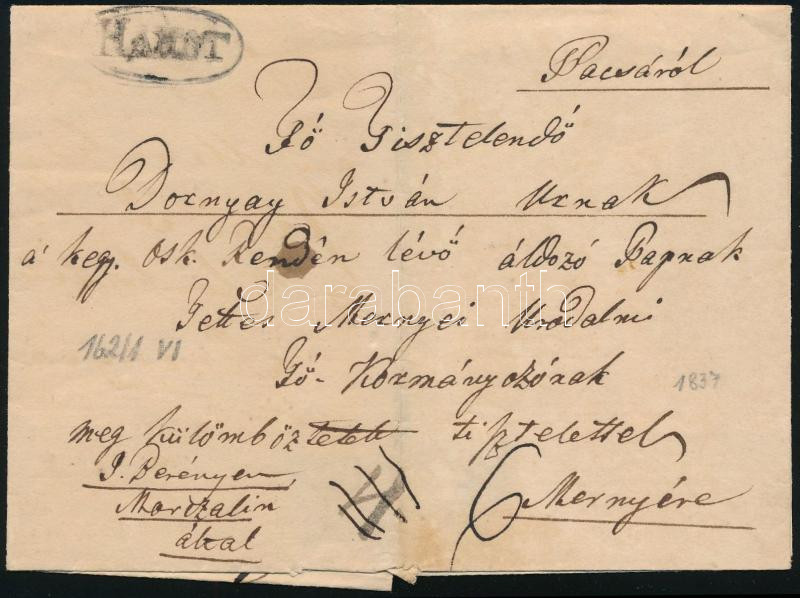 HAHÓT
Pacsáról
Fő Tisztelendő
Dornyay István Urnak
á kegy. Osk. Rendén lévő áldozó Papnak
Tettes Mernyei Uradalmi
Fő- Kormányozónak
162/1 VI
1837
meg külömböztetett tisztelettel
I. Berényen,
Marczalin
által
6 Mernyére
darabanth